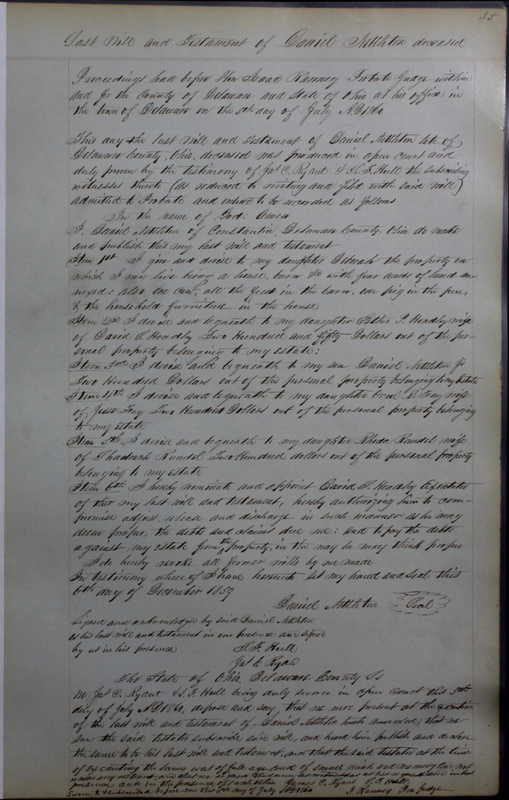 35
Last Will and Testament of Daniel Nettleton deceased
Proceedings had before Hon Isaac Ranney Probate Judge within
and for the County of Delaware and State of Ohio at his office in
the town of Delaware on the 5th day of July AD 1860
This day the last will and testament of Daniel Nettleton late of
Delaware County, Ohio, deceased was produced in open court and
duly proven by the testimony of Jas C. Ryant & S. F. Hull the subscribing
witnesses thereto (as reduced to writing and filed with said will)
admitted to Probate and ordered to be recorded as follows
In the name of God: Amen
I, Daniel Nettleton of Constantia, Delaware County, Ohio do make
and publish this my last will and testament
Item 1st I give and devise to my daughter Deborah the property on
which I now live being a house, barn &c with four acres of land
also one cow, all the in the barn, one pig in the pen,
& the household furniture in the house
Item 2nd I devise and bequeath to my daughter Esther P. Hoadly wife
of David S. Hoadly Two Hundred and fifty Dollars out of the per-
sonal property belonging to my estate:
Item 3rd I devise and bequeath to my son Daniel Nettleton Jr
Two Hundred Dollars out of the personal property belonging to my estate
Item 4th I devise and bequeath to my daughter wife
of Two Hundred Dollars out of the personal property belonging
to my estate
Item 5th I devise and bequeath to my daughter Rhoda Rundel wife
of Shadrach Rundel Two Hundred dollars out of the personal property
belonging to my estate
Item 6th I hereby nominate and appoint David S. Hoadly Executor
of this my last will and testament, hereby authorizing him to com-
promise adjust, release and discharge in such manner as he may
deem proper, the debts and claims due me: and to pay the debts
against my estate from the property, in the way he may think proper
I do hereby revoke all former wills by me made
In testimony where of I have hereunto set my hand and seal this
6th day of December 1857
Daniel Nettleton Seal
Signed and acknowledged by said Daniel Nettleton
as his last will and testament in our presence and signed
by us in his presence S. F. Hull
Jas C Ryant
The State of Ohio, Delaware County Ss
We Jas C. Ryant & S. F. Hull being duly sworn in open court this 5th
day of July AD 1860, depose and say, that we were present at the execution
of the last will and testament of Daniel Nettleton hereto annexed; that we
saw the said testator subscribe said will, and heard him publish and declare
the same to be his last will and testament, and that the said testator at the time
of executing the same was of full age and of sound mind and memory and not
under any restraint, and that we signed the same as witnesses at his request and in his
presence and in the presence of each other James C. Ryant S. F. Hull
Sworn to & subscribed before me this 5th day of July AD 1860 I. Ranney Pro. Judge